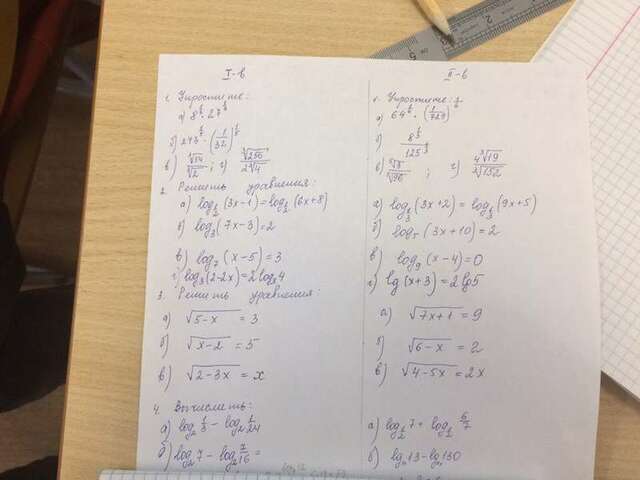 I-в
1. Упростите:
а) 8^(1/3) · 27^(1/3)
б) 243^(1/5) · (1/32)^(1/5)
в) ; г) ∛256 / 2∛4
2. Решить уравнения:
а) log_(1/2) (3x-1) = log_(1/2) (6x+8)
б) log₃ (7x-3) = 2
в) log₇ (x-5) = 3
г) log₃(2-2x) = 2 log₃ 4
3. Решить уравнения:
а) √(5-x) = 3
б) √(x-2) = 5
в) √(2-3x) = x
4. Вычислить:
а) log₂ 1/3 - log₂ 1/24
б) log₂ 7 - log₂ 7/16 =
II-в
1. Упростите:
а) 64^(1/6) · (1/729)^(1/6)
б) 8^(1/3) / 125^(1/3)
в) ; г) 4∛19 / ∛152
а) log_(1/3) (3x+2) = log_(1/3) (9x+5)
б) log₅ (3x+10) = 2
в) log₉ (x-4) = 0
г) lg (x+3) = 2 lg 5
а) √(7x+1) = 9
б) √(6-x) = 2
в) √(4-5x) = 2x
а) log_(1/2) 7 + log_(1/2) 6/7
в) 13 - 130